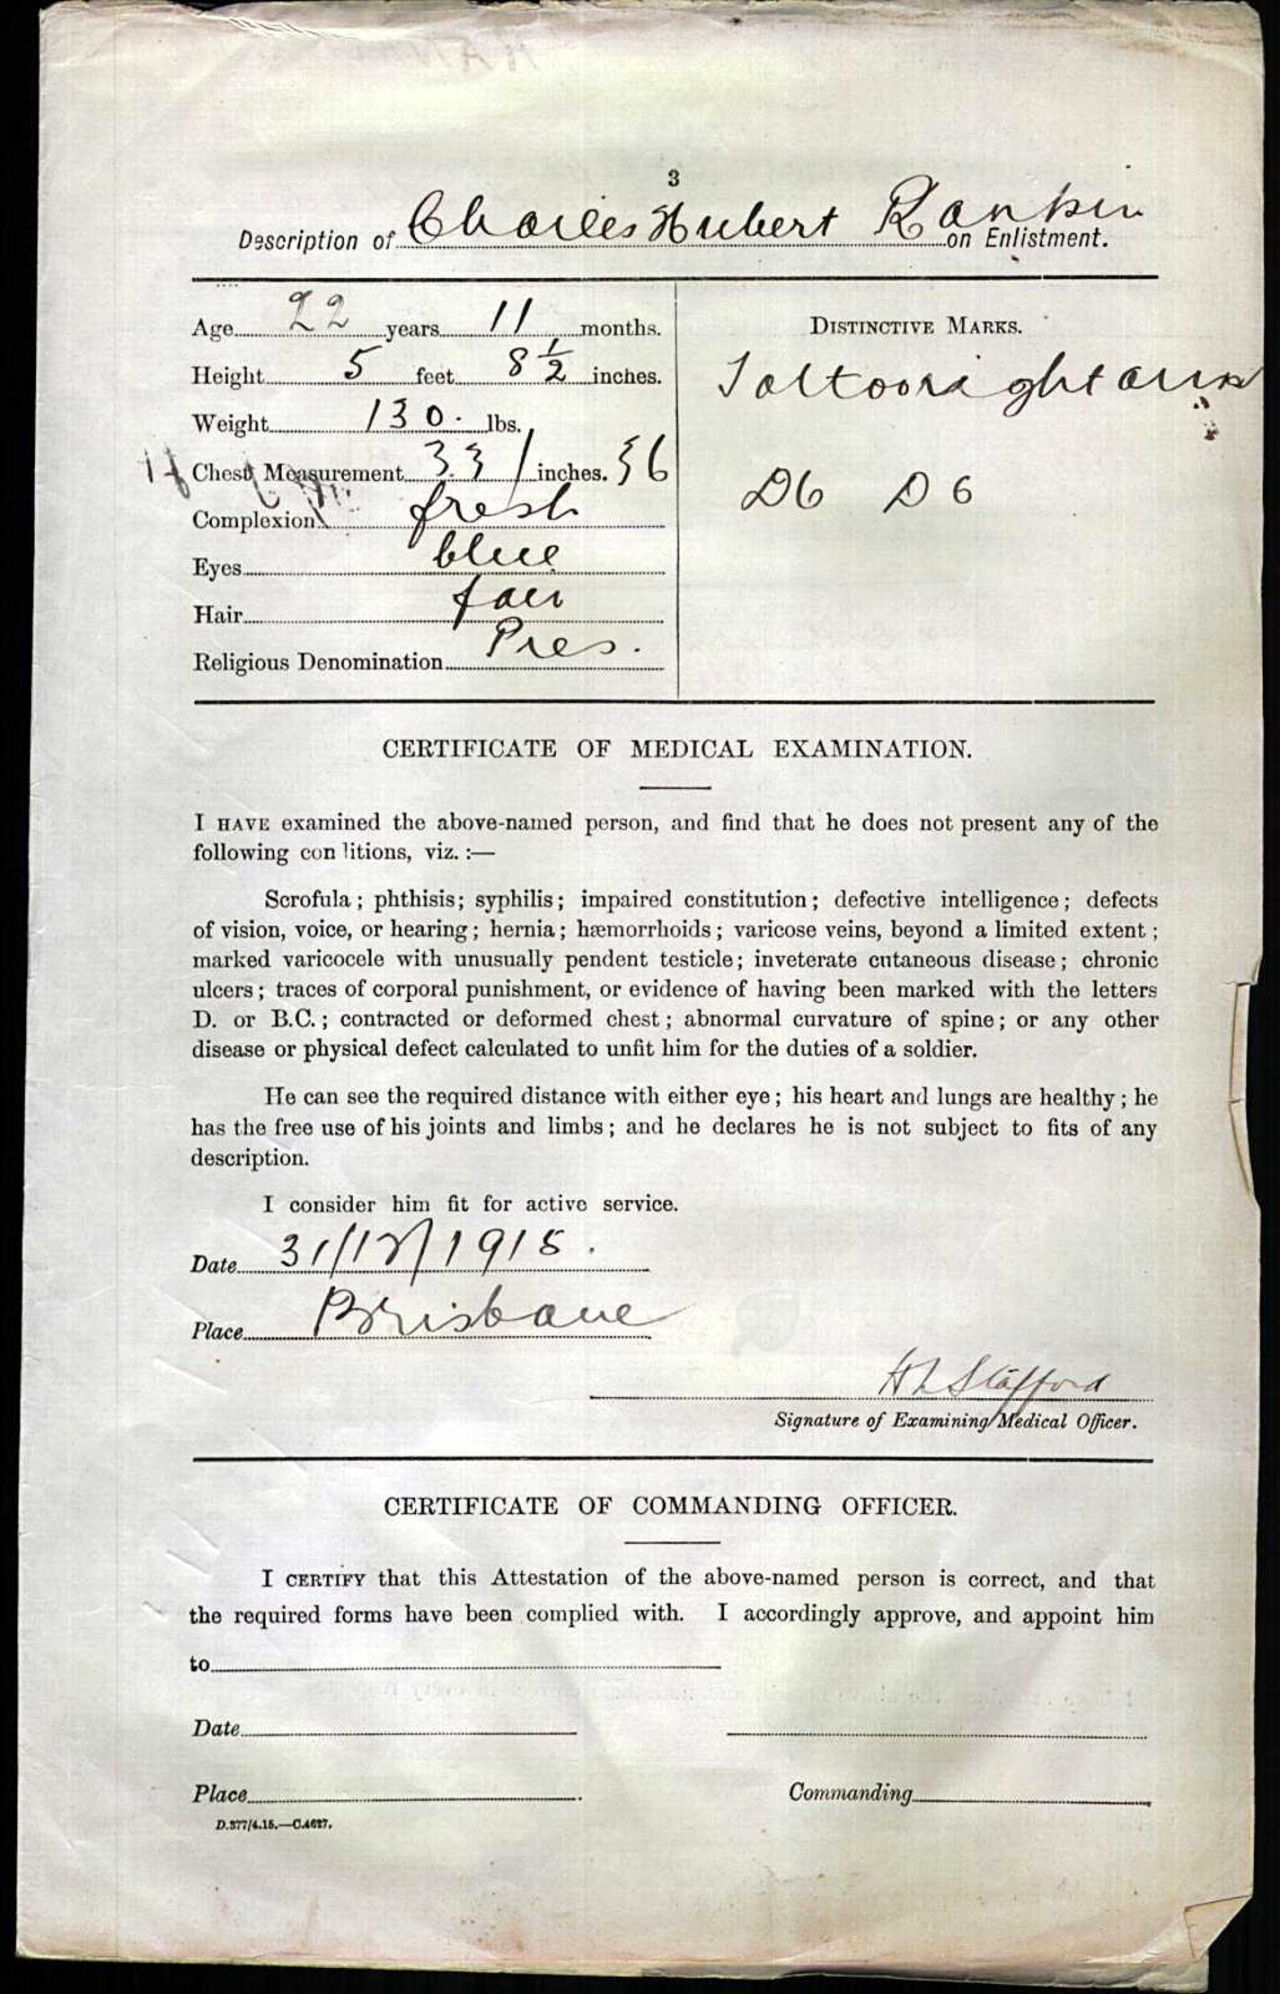 3
Description of Charles Hubert Rankin on Enlistment.
Age 22 years 11 months.
Height 5 feet 8 ½ inches.
Weight 130. lbs.
Chest Measurement 33 / inches. 36
Complexion fresh
Eyes blue
Hair fair
Religious Denomination Pres.
DISTINCTIVE MARKS.
right arm
D6 D6
CERTIFICATE OF MEDICAL EXAMINATION.
I HAVE examined the above-named person, and find that he does not present any of the
following con litions, viz. :—
Scrofula ; phthisis; syphilis; impaired constitution; defective intelligence; defects
of vision, voice, or hearing; hernia; hæmorrhoids; varicose veins, beyond a limited extent ;
marked varicocele with unusually pendent testicle; inveterate cutaneous disease; chronic
ulcers; traces of corporal punishment, or evidence of having been marked with the letters
D. or B.C.; contracted or deformed chest; abnormal curvature of spine; or any other
disease or physical defect calculated to unfit him for the duties of a soldier.
He can see the required distance with either eye; his heart and lungs are healthy; he
has the free use of his joints and limbs; and he declares he is not subject to fits of any
description.
I consider him fit for active service.
Date 31/12/1915.
Place Brisbane
H L Stafford
Signature of Examining Medical Officer.
CERTIFICATE OF COMMANDING OFFICER.
I CERTIFY that this Attestation of the above-named person is correct, and that
the required forms have been complied with. I accordingly approve, and appoint him
to
Date
Place
Commanding
D.377/4.15.—C.4627.